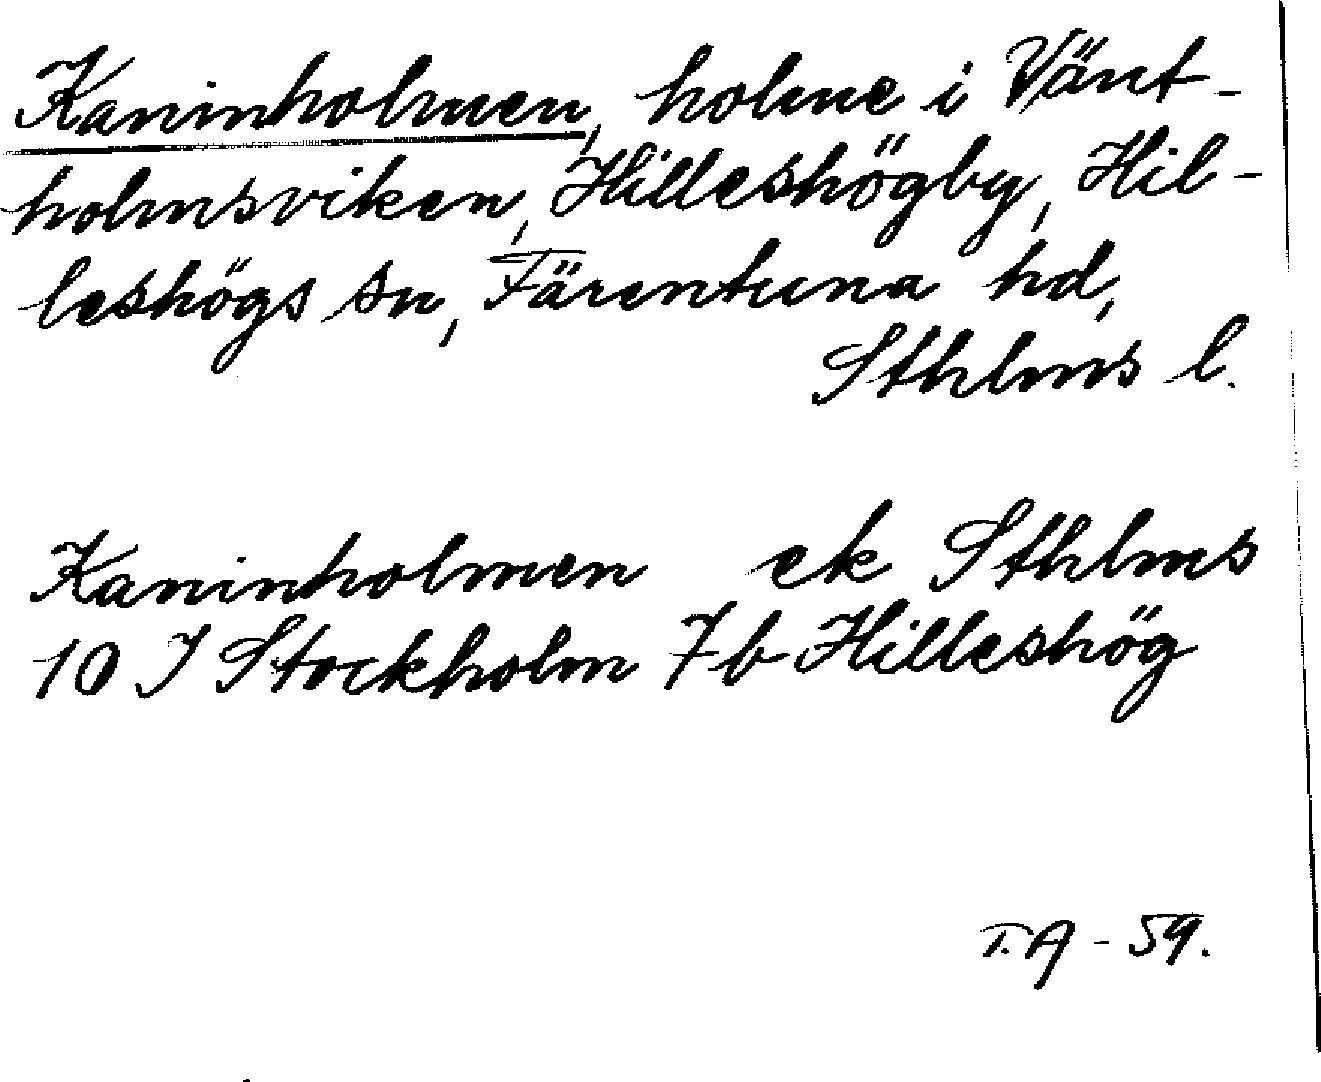 Kaninholmen, holme i Vänt-
holmsviken, Hilleshögby, Hil-
leshögs sn, Färentuna hd,
Sthlms l.
Kaninholmen ek Sthlms
10 I Stockholm 7b Hilleshög
T.A - 59.